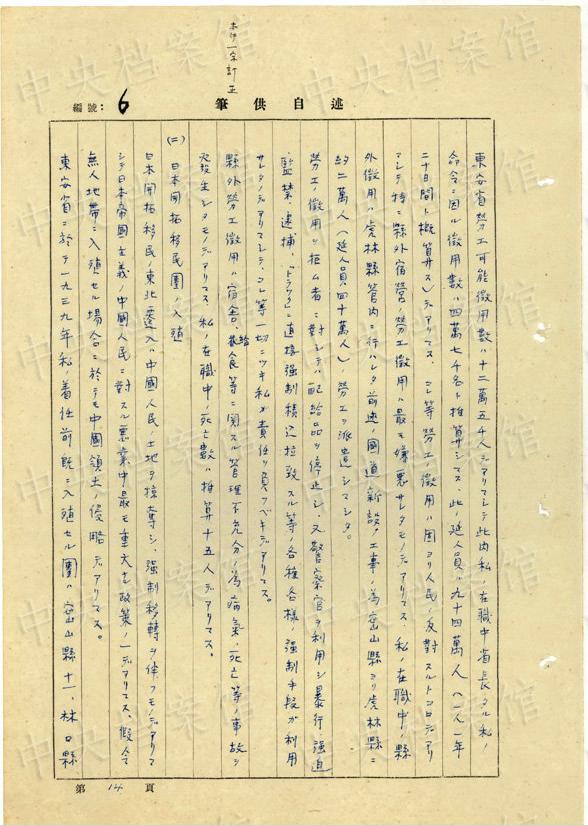 本行一字訂正
編號：6
筆供自述
東安省勞工可能徴用数ハ十二萬五千人デアリマシテ此内私ノ在職中省長タル私ノ
命令ニ因ル徴用数ハ四萬七千名ト推算シマス、此ノ延人員ハ九十四萬人（一人一年
二十日間ト概算ス）デアリマス、コレ等勞工ノ徴用ハ固ヨリ人民ノ反對スルトコロデアリ
マシテ特ニ縣外宿營勞工徴用ハ最モ嫌悪サレタモノデアリマス、私ノ在職中ノ縣
外徴用ハ虎林縣管内ニ行ハレタ前述ノ國道新設ノ工事ノ為密山縣ヨリ虎林縣ニ
約二萬人（延人員四十萬人）ノ勞工ヲ派遣シマシタ。
勞工ノ徴用ヲ拒ム者ニ對シテハ配給品ヲ停止シ、又警察官ヲ利用シ暴行強迫
監禁、逮捕、「トラック」ニ直接強制積込拉致スル等ノ各種各様ノ強制手段ガ利用
サレタノデアリマシテ、コレ等一切ニツキ私ガ責任ヲ負フベキデアリマス。
縣外勞工徴用ハ宿舎、給食等ニ関スル管理不充分ノ為病気、死亡等ノ事故ヲ
発生シタモノデアリマス、私ノ在職中ノ死亡数ハ推算十五人デアリマス。
(二) 日本開拓移民團ノ入殖
日本開拓移民ノ東北遷入ハ中國人民ノ土地ヲ掠奪シ、強制移轉ヲ伴フモノデアリマ
シテ日本帝國主義ノ中國人民ニ對スル悪業中最モ重大ナ政策ノ一デアリマス、假令
無人地帯ニ入殖セル場合ニ於テモ中國領土ノ侵略デアリマス。
東安省ニ於テ一九三九年私ノ着任前既ニ入殖セル團ハ密山縣十一、林口縣
第 14 頁
中央档案馆